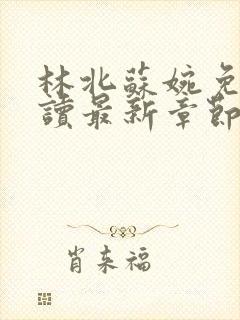 林北蘇婉免
讀最新章節
肖來福